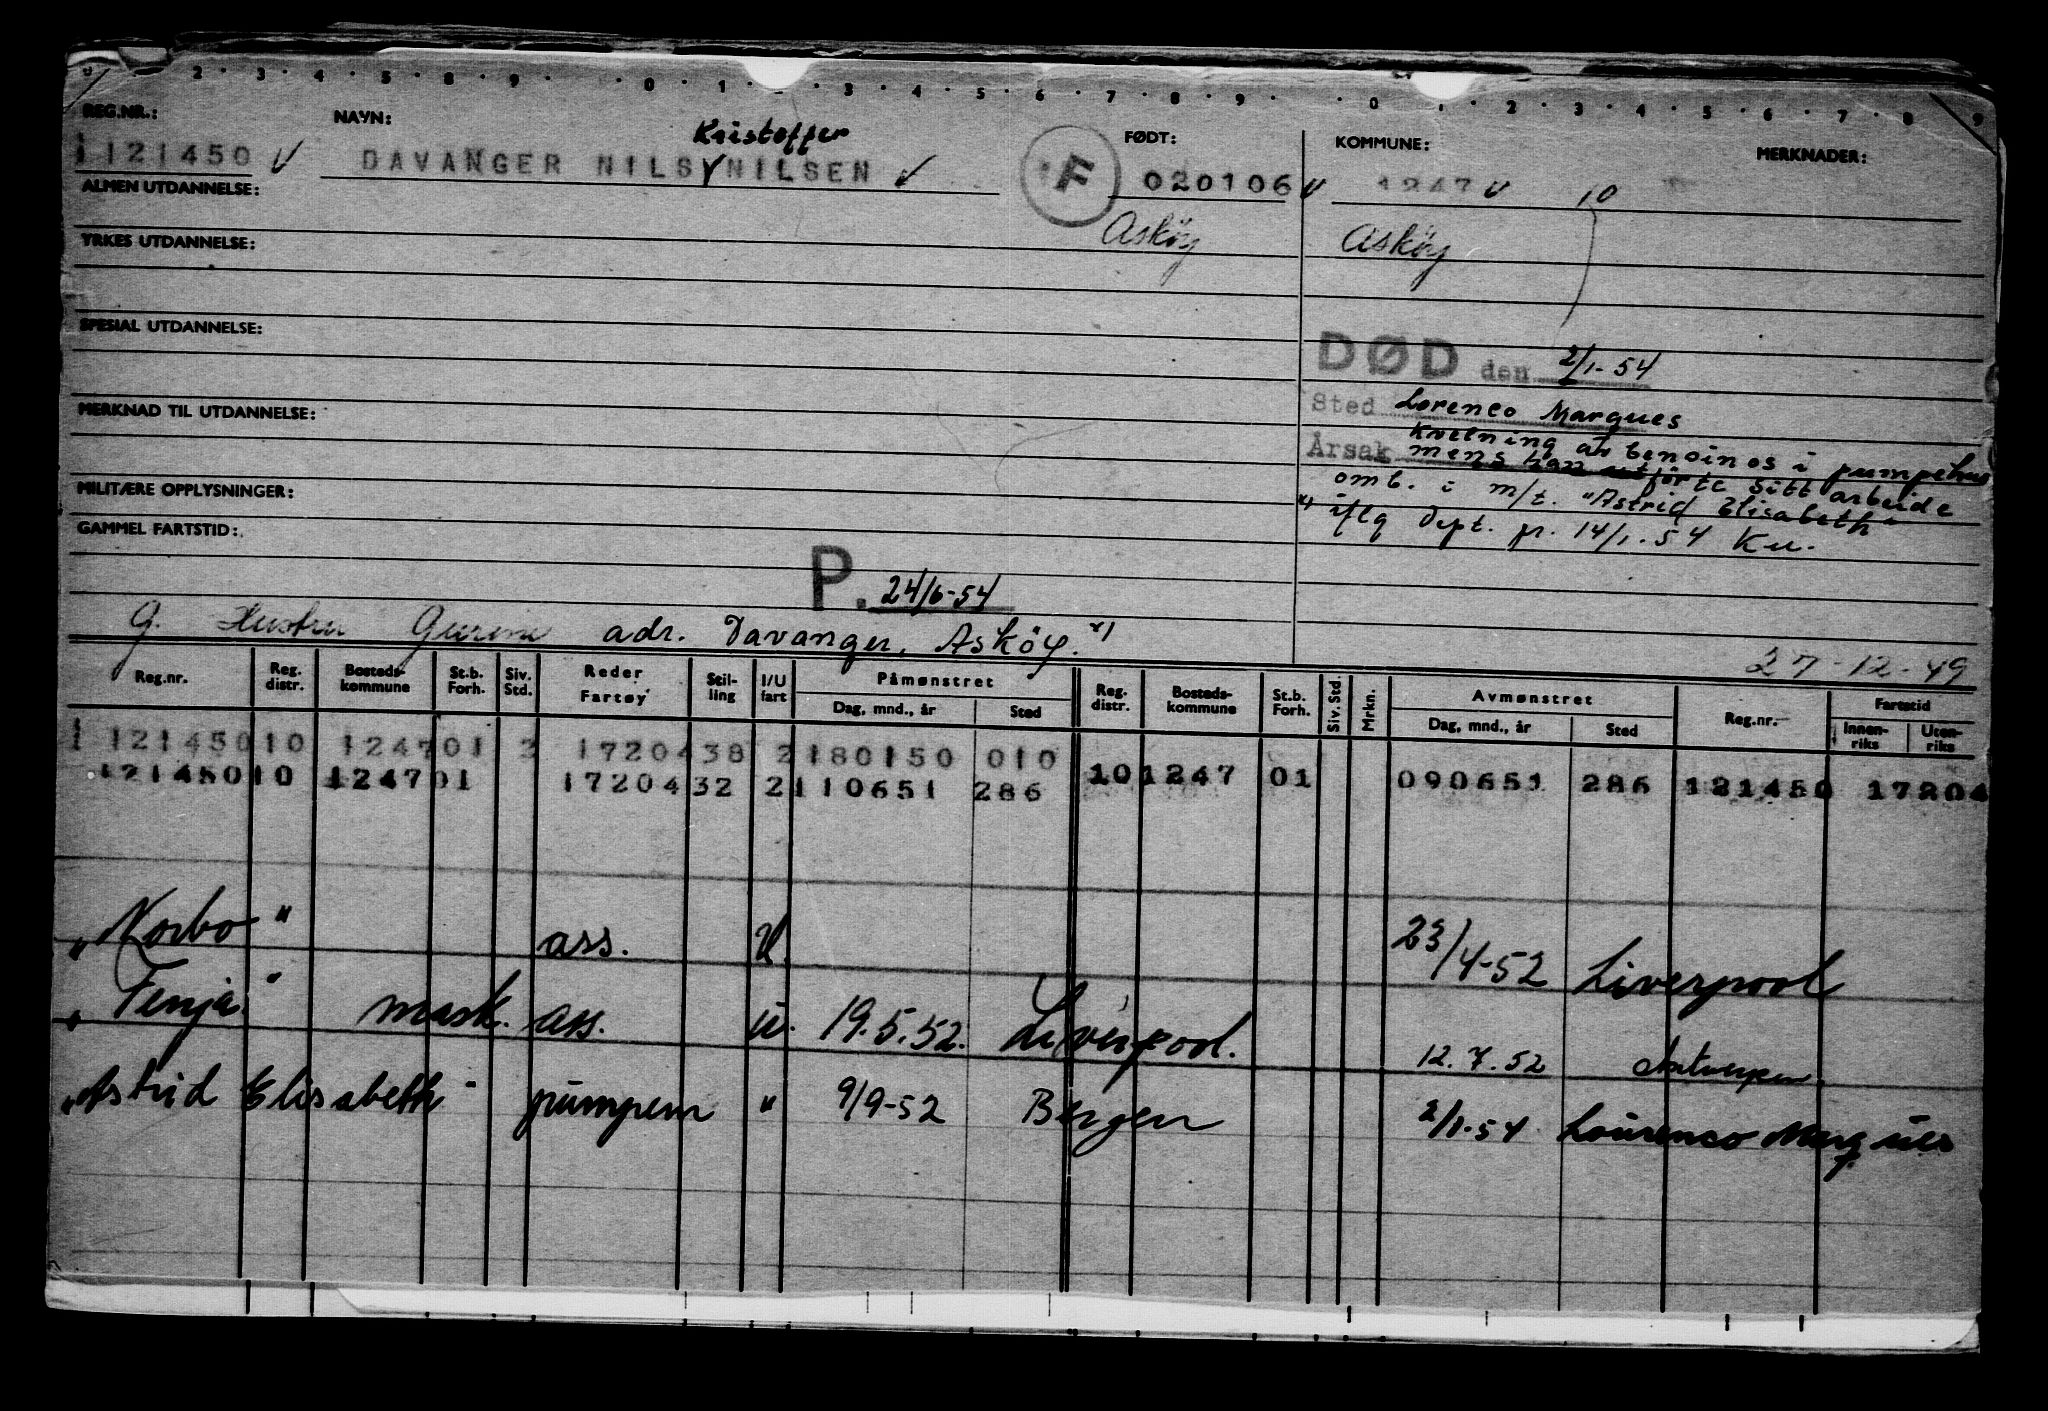 2 3 4 5 8 9 0 1 3 4 5 6 7 8 9 0 1 2 3 4 5 6 7 8 9
REG.NR.: NAVN: Kristoffer FØDT: KOMMUNE: MERKNADER:
1121450 DAVANGER NILS NILSEN F 020106 1247 10
ALMEN UTDANNELSE:
Asköy Asköy
YRKES UTDANNELSE:
SPESIAL UTDANNELSE:
DØD den 2/1-54
Sted Lorenco Marques
MERKNAD TIL UTDANNELSE:
Årsak Kvelning av bensinos i pumpehus
mens han utförte sitt arbeide
MILITÆRE OPPLYSNINGER:
omb. i m/t. "Astrid Elisabeth"
iflg Dept. pr. 14/1-54 Ku.
GAMMEL FARTSTID:
P. 24/6-54
G. Hustru adr. Davanger, Asköy.
27-12-49
Reg.nr. Reg. distr. Bosteds-kommune St.b. Forh. Siv. Std. Reder Fartøy Stil-ling I/U fart Påmønstret Dag, mnd., år Sted Reg. distr. Bosteds-kommune St.b. Forh. Siv. Std. Mrkn. Avmønstret Dag, mnd., år Sted Reg.nr. Fartstid Innen-riks Uten-riks
1 121450 10 1247 01 3 17204 38 2 180150 010
121450 10 1247 01 17204 32 2 110651 286 10 1247 01 090651 286 121450 17204
"Norbo" ass. U. 23/4-52 Liverpool
"Fenja" mask. ass. u. 19.5.52. Liverpool. 12.7.52 Antwerpen
"Astrid Elisabeth" pumpem " 9/9-52 Bergen 2/1-54 Lourenco Marques